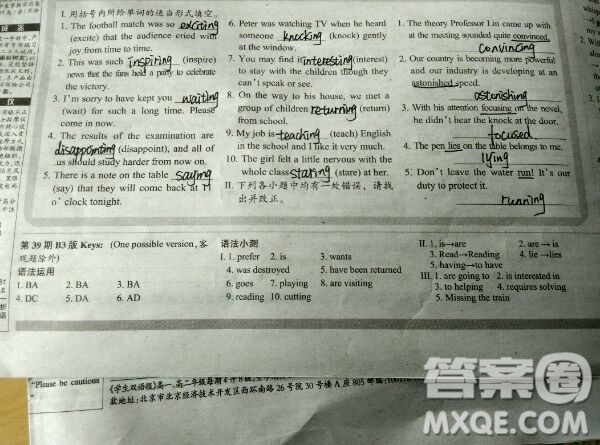 I. 用括号内所给单词的适当形式填空。
1. The football match was so exciting
(excite) that the audience cried with
joy from time to time.
2. This was such inspiring (inspire)
news that the fans held a party to celebrate
the victory.
3. I'm sorry to have kept you waiting
(wait) for such a long time. Please
come in now.
4. The results of the examination are
disappointing (disappoint), and all of
us should study harder from now on.
5. There is a note on the table saying
(say) that they will come back at 11
o' clock tonight.
6. Peter was watching TV when he heard
someone knocking (knock) gently
at the window.
7. You may find it interesting (interest)
to stay with the children though they
can't speak or see.
8. On the way to his house, we met a
group of children returning (return)
from school.
9. My job is teaching (teach) English
in the school and I like it very much.
10. The girl felt a little nervous with the
whole class staring (stare) at her.
II. 下列各小题中均有一处错误，请找
出并改正。
1. The theory Professor Lin came up with
at the meeting sounded quite convinced.
convincing
2. Our country is becoming more powerful
and our industry is developing at an
astonished speed.
astonishing
3. With his attention focusing on the novel,
he didn't hear the knock at the door.
focused
4. The pen lies on the table belongs to me.
lying
5. Don't leave the water run! It's our
duty to protect it.
running
第 39 期 B3 版 Keys: (One possible version, 客
观题除外)
语法运用
1. BA 2. BA 3. BA
4. DC 5. DA 6. AD
语法小测
I. 1. prefer 2. is 3. wants
4. was destroyed 5. have been returned
6. goes 7. playing 8. are visiting
9. reading 10. cutting
II. 1. is→are 2. are → is
3. Read→Reading 4. lie →lies
5. having→to have
III. 1. are going to 2. is interested in
3. to helping 4. requires solving
5. Missing the train
"Please be cautious
《学生双语报》高一、高二年级每期4开8版
款地址：北京市北京经济技术开发区西环南路 26 号院 30 号楼 A 座 805
答案圈
MXQE.COM